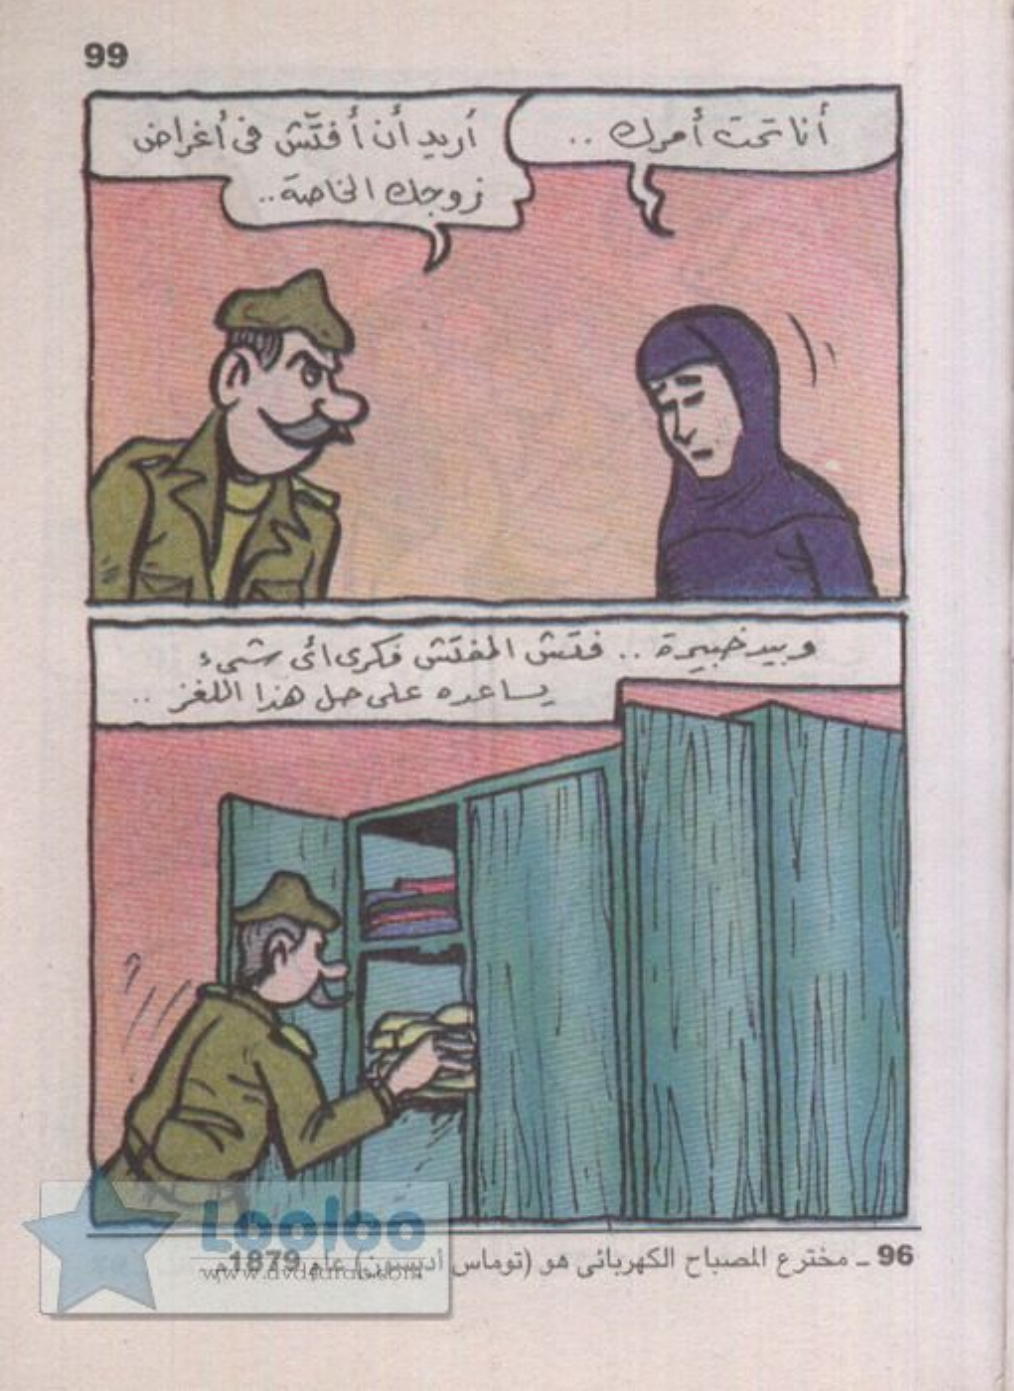 99
أنا تحت أمرك ..
أريد أن أفتّش فى أغراض
زوجك الخاصة..
وبيد خبيرة .. فتش المفتش فكرى أى شىء
يساعده على حل هذا اللغز ..
96 ـ مخترع المصباح الكهربائى هو (توماس أديسون) عام 1879
Looloo